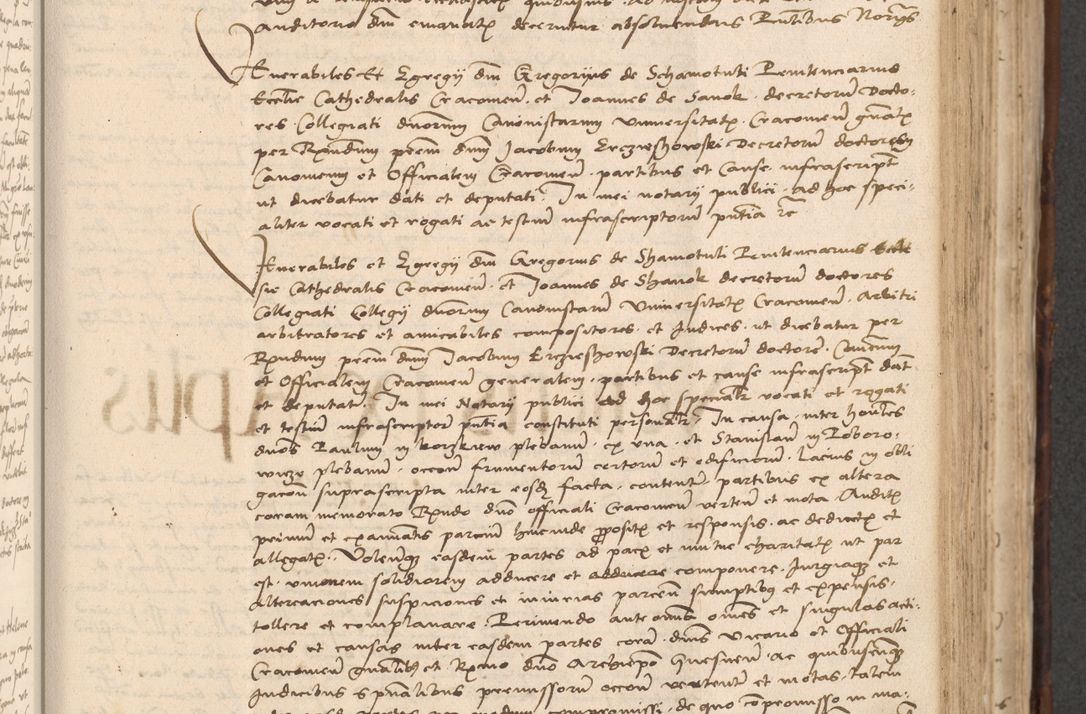 auditorio dm emanatx decernitur absoluendus Rntibus Norijs
Venerabiles Et Egregij dm Gregorius de Schamotuli Penitenciarius
Ecclie Cathedralis Cracouien et Joannes de Sanok decretorum Docto-
res Collegiati duorum Canonistarum Vniuersitatx Cracouien gnatx
per Rndum prem dnm Jacobum Erczieszowski Decretorum doctorem
Canonicum et Officialem Cracouien partibus et Cause infrascript
ut dicebatur dati et deputati In mei notarij publici ad hoc speci-
aliter vocati et rogati ac testium infrascriptorum pntia rc
Venerabiles et Egregij dm Gregorius de Shamotuli Penitenciarius Eccle
sie Cathedralis Cracouien et Joannes de Shanok decretorum doctores
Collegiati Collegij duorum Canonistarum Vniuersitatx Cracouien Arbitri
arbitratores et amicabiles compositores et Judices ut dicebatur per
Rndum prem dnm Jacobum Erczieszowski Decretorum doctorem Canonicum
et Officialem Cracouien generalem partibus et cause infrascript dati
et deputat In mei Notarij publici ad hoc specialr vocati et rogati
et testium infrascriptor pntia constituti personalr In causa inter honbles
dnos Paulum in korzkiew plebanum ex vna et Stanislaum in Poboro-
wicze plebanum occone frumentorum certorum et edificiorum Lacius in obli
gacone suprascripta inter eosdem facta content partibus ex altera
coram memorato Rndo dno officiali Cracouien verten et mota Auditx
primum et examinatis parcium hincinde propositx et responsis ac deductx et
allegatx Volentesque easdem partes ad pacx et mutue charitatx ut par
est vnionem solidiorem adducere et componere Jurgiaque et
altercaciones suspiciones et iniurias parcium sumptibus et expensis
tollere et complanare Perimendo ante omnia omnes et singulas acti-
ones et causas inter easdem partes coram dnis Vicario et Officiali
Cracouien gnalibus et Rmo dno Archiepo Gnesnen ac quibuscunque
Judicibus spnalibus premissorum occone verten et motas talem